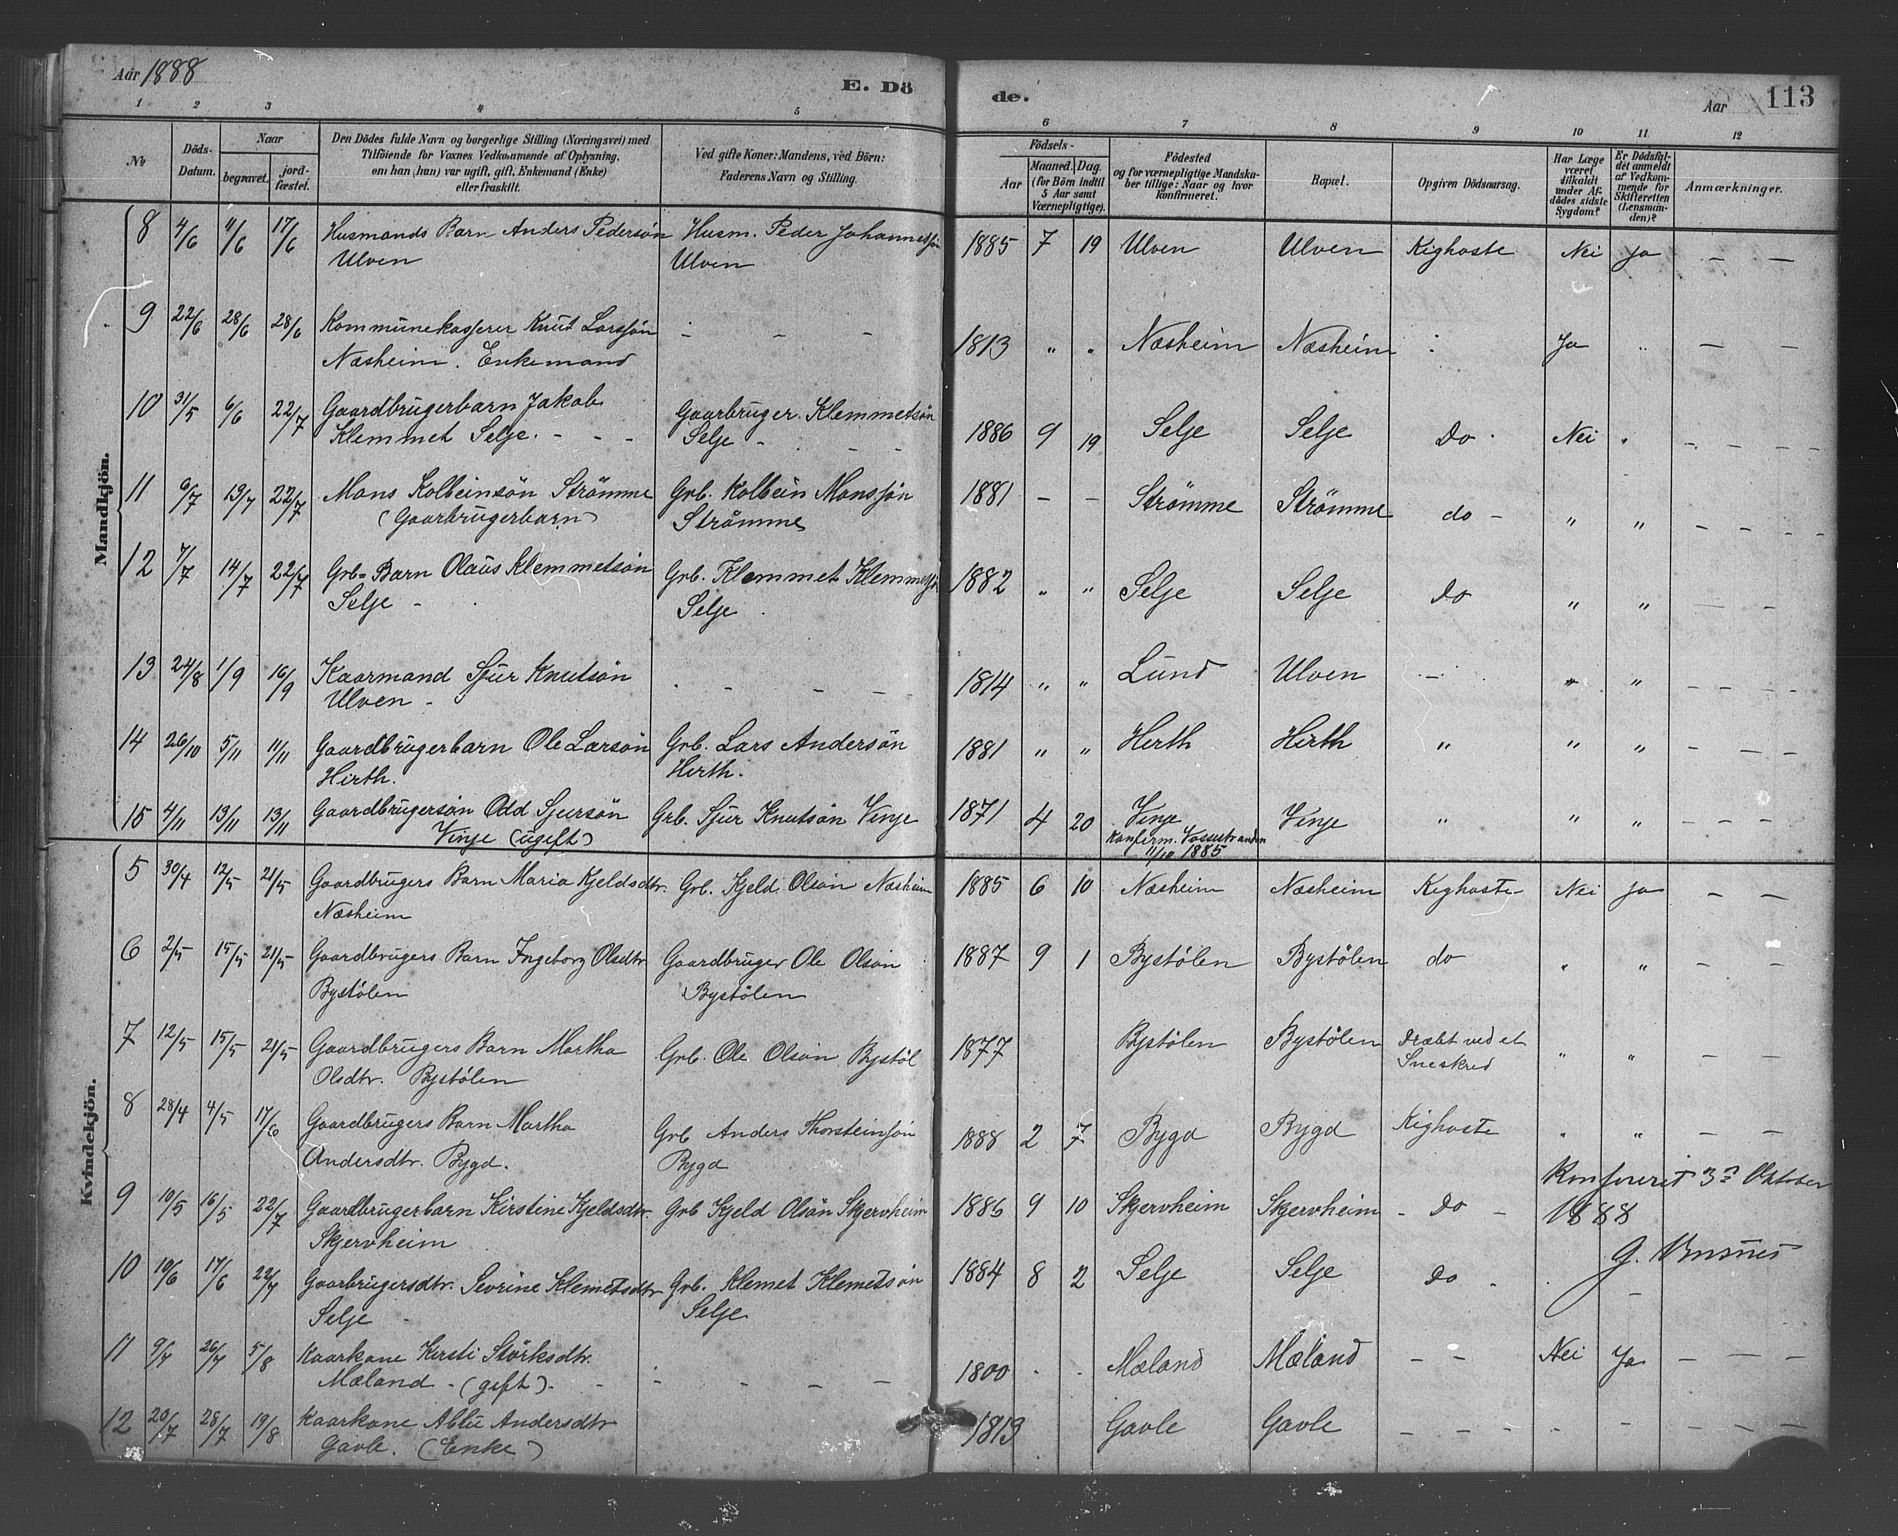 Aar 1888
E. Dö
de.
Aar
113
1 2 3 4 5 6 7 8 9 10 11 12
No
Döds-Datum.
Naar
begravet.
jord-fæstet.
Den Dödes fulde Navn og borgerlige Stilling (Næringsvei) med
Tilföiende for Voxnes Vedkommende af Oplysning,
om han (hun) var ugift, gift, Enkemand (Enke)
eller fraskilt.
Ved gifte Koner: Mandens, ved Börn:
Faderens Navn og Stilling.
Födsels-
Aar
Maaned. Dag.
(for Börn indtil
5 Aar samt
Værnepligtige).
Födested
og for værnepligtige Mandska-
ber tillige: Naar og hvor
konfirmeret.
Bopæl.
Opgiven Dödsaarsag.
Har Læge
været
tilkaldt
under Af-
dödes sidste
Sygdom?
Er Dödsfal-
det anmeldt
af Vedkom-
mende for
Skifteretten
(Lensman-
den)?
Anmærkninger.
Mandkjön.
8 4/6 11/6 17/6 Husmands Barn Anders Pedersön Husm. Peder Johannessön 1885 7 19 Ulven Ulven Kighoste Nei Ja – –
Ulven Ulven
9 22/6 28/6 28/6 Kommunekasserer Knut Larssön – – – 1813 " " Næsheim Næsheim Ja " – –
Næsheim. Enkemand
10 31/5 6/6 22/7 Gaardbrugerbarn Jakob Gaarbruger. Klemmetsön 1886 9 19 Selje Selje Do Nei " – – –
Klemmet Selje. – – – Selje – – –
11 6/7 13/7 22/7 Mons Kolbeinsön Strömme Grb. Kolbein Monssön 1881 – – Strömme Strömme do – " " – – –
(Gaarbrugerbarn) Strömme
12 7/7 14/7 22/7 Grb= Barn Olaus Klemmetsön Grb. Klemmet Klemmetsön 1882 " " Selje Selje Do " " – – –
Selje – Selje
13 24/8 1/9 16/9 Kaarmand Sjur Knutsön – – – – 1814 " " Lund Ulven – " " – – –
Ulven –
14 26/10 5/11 11/11 Gaardbrugerbarn Ole Larsön Grb. Lars Andersön 1881 " " Hirth Hirth " " " – – –
Hirth. Hirth.
15 4/11 13/11 13/11 Gaardbrugersön Odd Sjursön Grb. Sjur Knutsön Vinje 1871 4 20 Vinje Vinje " " " – – –
Vinje (ugift) Konfirm. Vossestranden
11/10 1885
Kvindekjön.
5 30/4 12/5 21/5 Gaardbrugers Barn Maria Kjeldsdtr. Grb. Kjeld Olsön Næsheim 1885 6 10 Næsheim Næsheim Kighoste Nei Ja – –
Næsheim
6 2/5 15/5 21/5 Gaardbrugers Barn Ingeborg Olsdtr Gaardbruger Ole Olson 1887 9 1 Bystölen Bystölen do " " – –
Bystölen Bystölen
7 12/5 15/5 21/5 Gaardbrugers Barn Martha Grb. Ole Olson Bystöl 1877 Bystölen Bystölen Dræbt ved et " " – –
Olsdtr. Bystölen Sneskred
8 28/4 4/5 17/6 Gaardbrugers Barn Martha Grb Anders Thorsteinsön 1888 2 7 Bygd Bygd Kighoste " " – –
Andersdtr. Bygd. Bygd
Konfereret 3die Oktober
9 10/5 16/5 22/7 Gaardbrugerbarn Kirstine Kjeldsdtr. Grb Kjeld Olsön Skjervheim 1886 9 10 Skjervheim Skjervheim – Do – 1888
Skjervheim
10 10/6 17/6 22/7 Gaarbrugersdtr. Sevrine Klemetsdtr Grb. Klemet Klemetsön 1884 8 2 Selje Selje Do –
Selje – Selje
11 9/7 26/7 5/8 Kaarkone Kirsti Störksdtr. – – – – 1800 – – Mæland Mæland – – Nei Ja – – –
Mæland – (gift). –
12 20/7 28/7 19/8 Kaarkone Andersdtr 1819 Gavle Gavle – – – – – –
Gavle. (Enke)